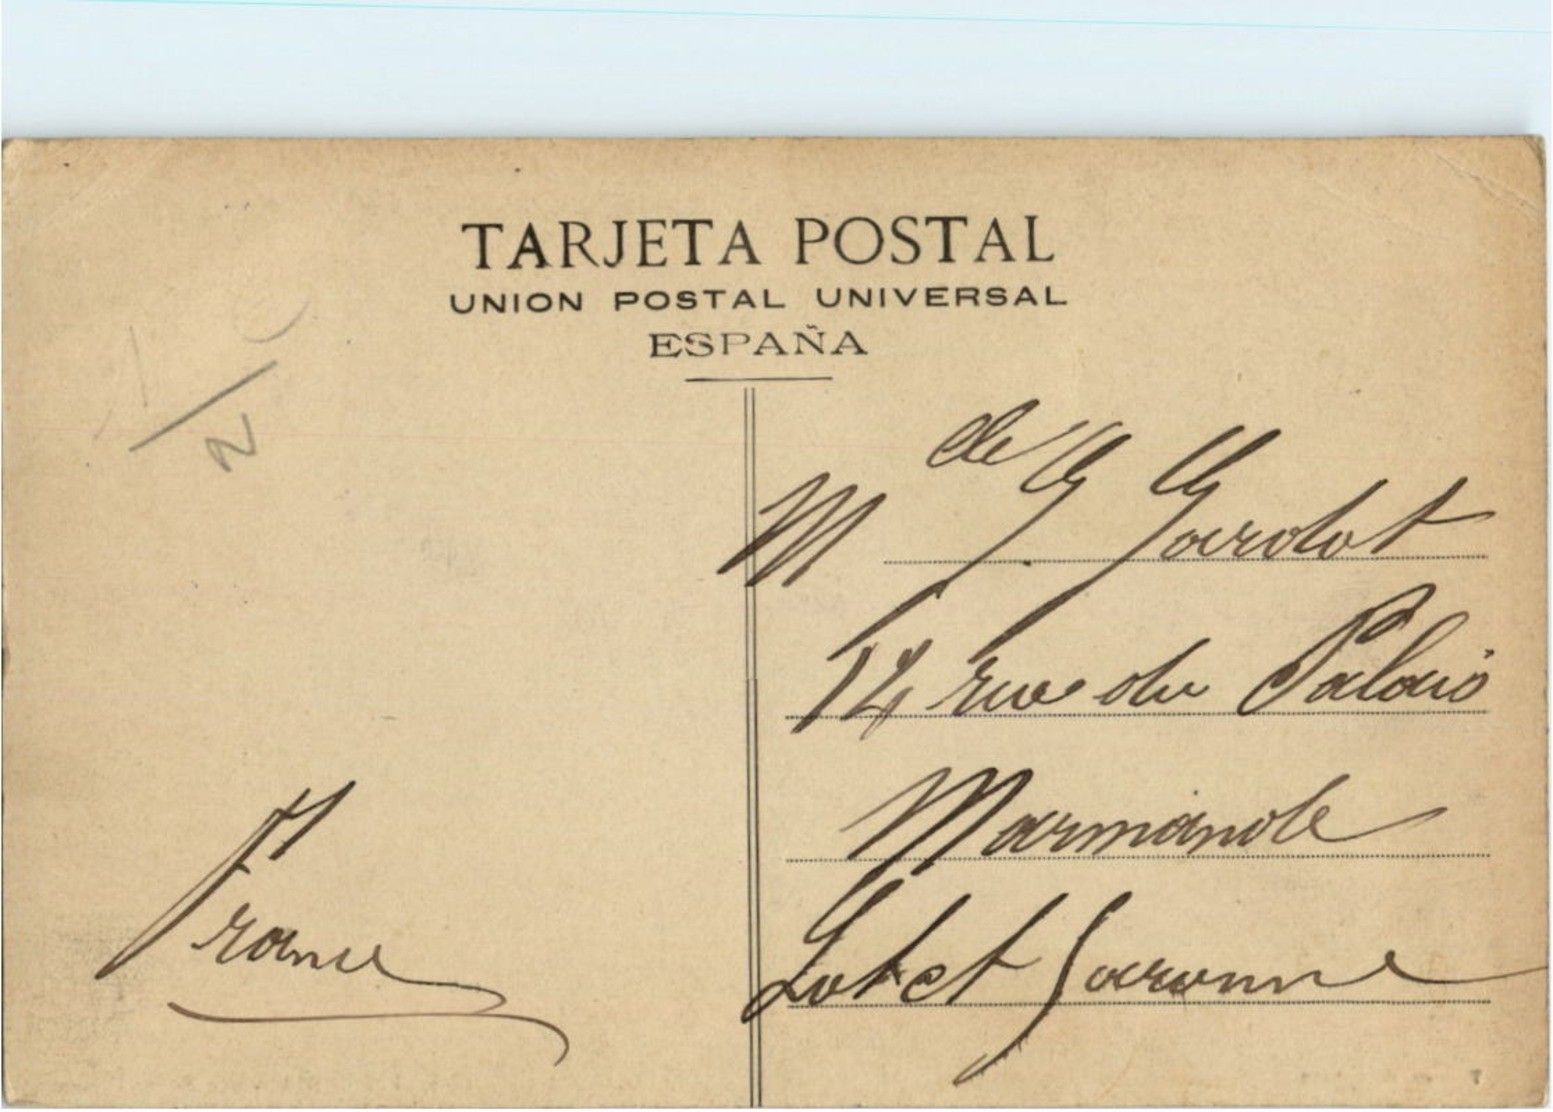 TARJETA POSTAL
UNION POSTAL UNIVERSAL
ESPAÑA
2/
M de G Gardot
12 rue du Palais
Marmande
Lot et Garonne
France